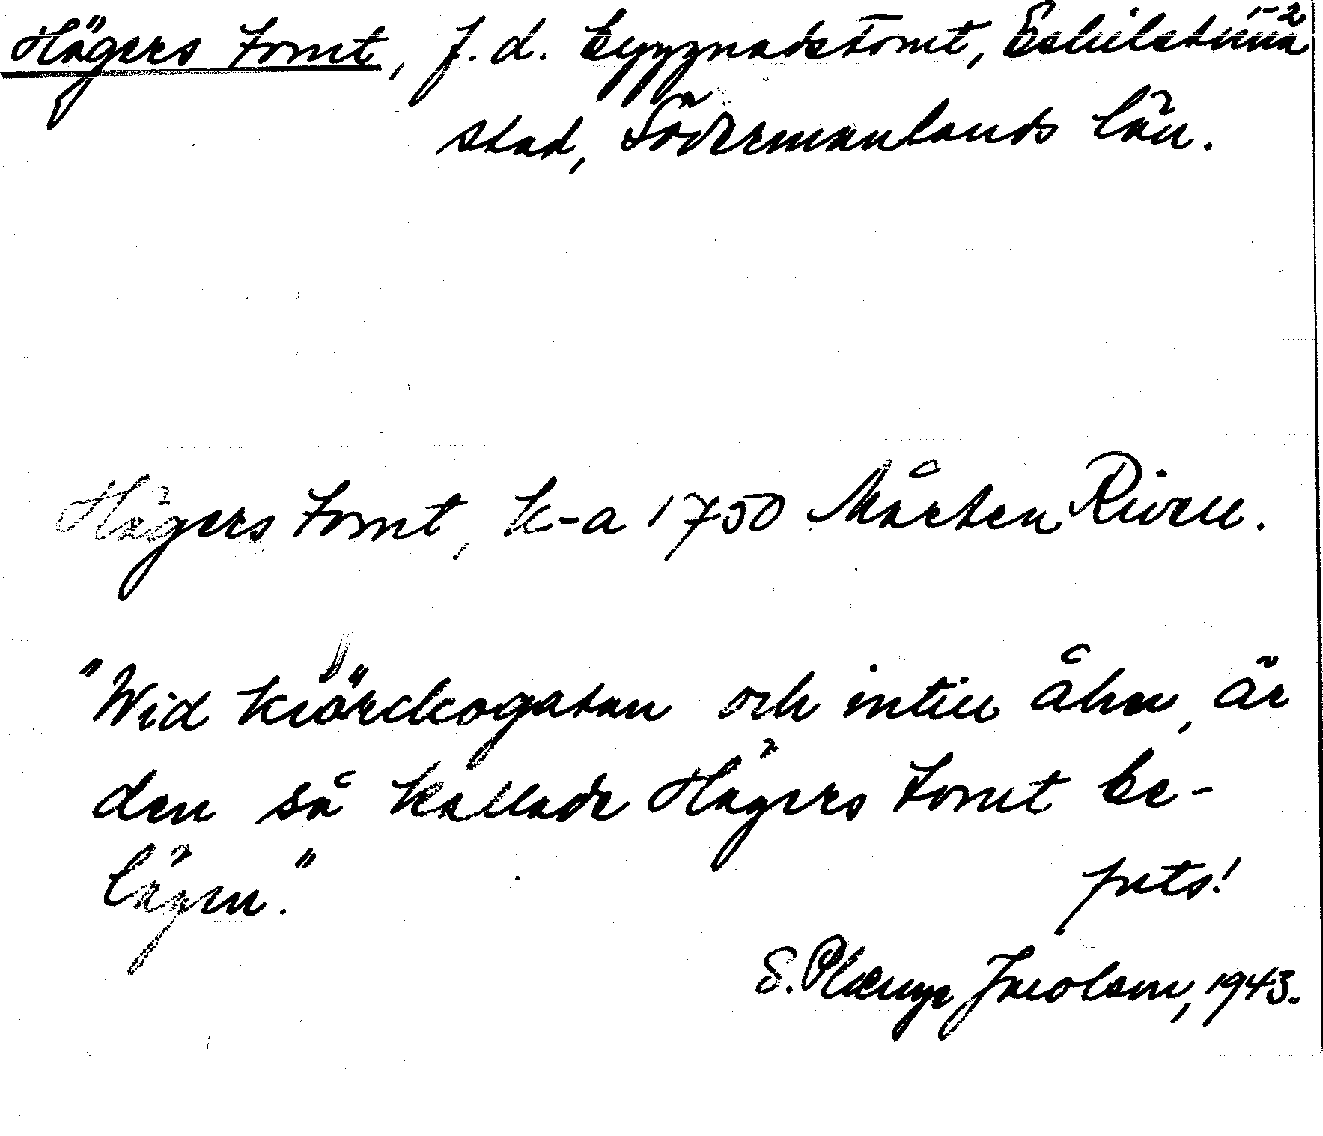 Hägers Tomt, f.d. byggnadstomt, Eskilstuna 1-2
stad, Södermanlands län.
Hägers Tomt, k-a 1750 Mårten Rivell.
"Wid kiörckogatan och intill åhn, är
den så kallade Hägers Tomt be-
lägen."
S. 1943.